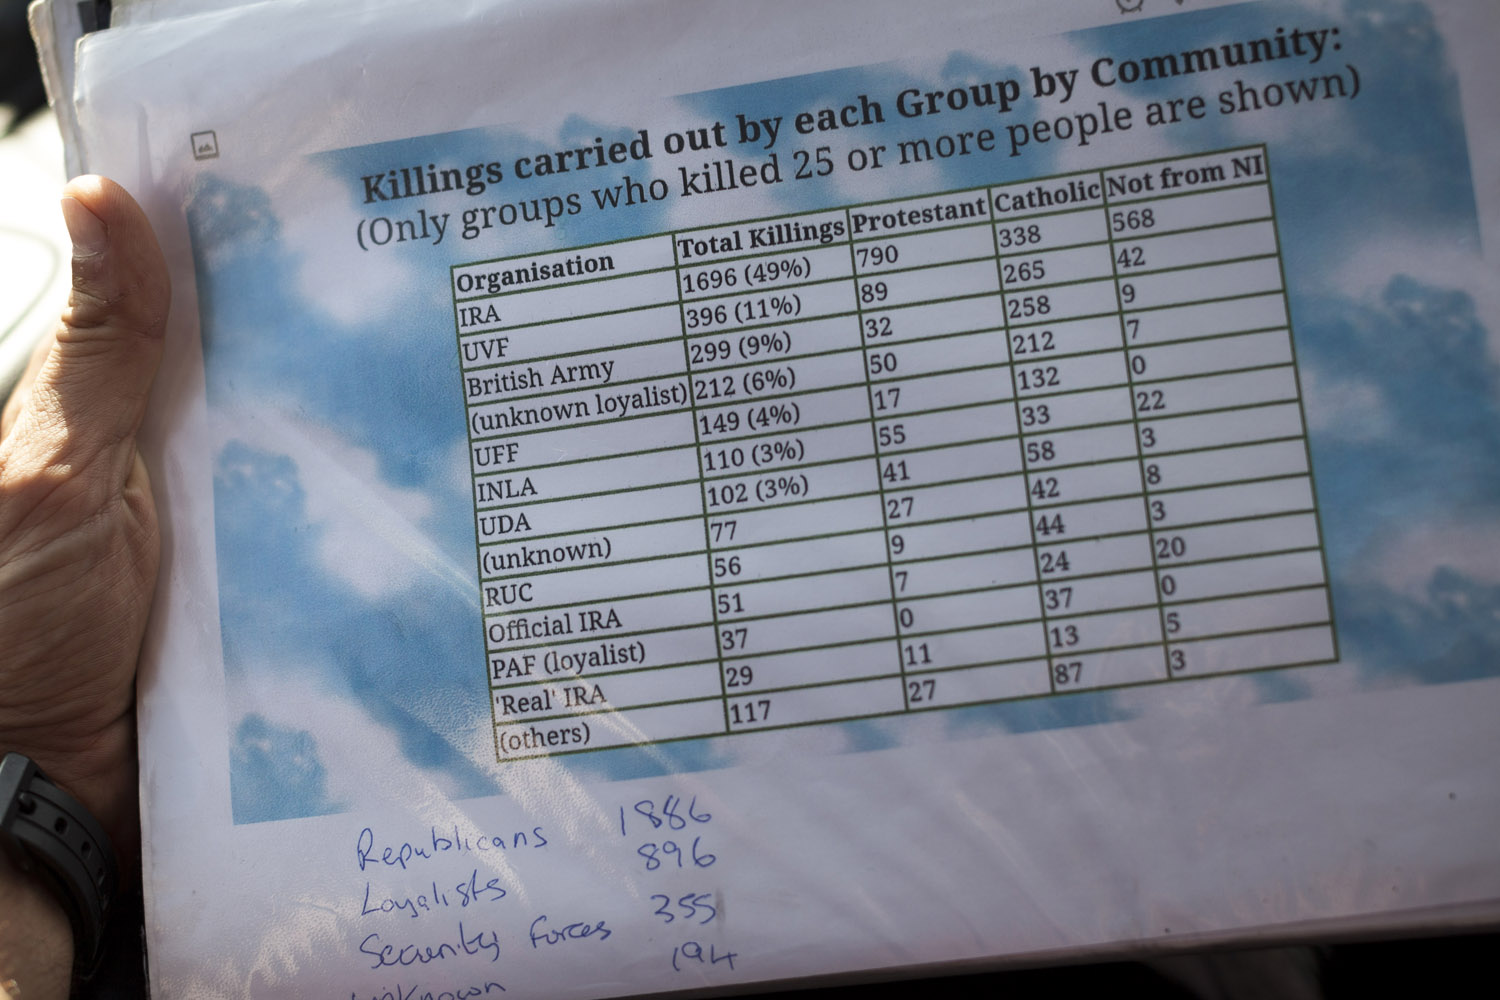 Killings carried out by each Group by Community:
(Only groups who killed 25 or more people are shown)
Organisation Total Killings Protestant Catholic Not from NI
IRA 1696 (49%) 790 338 568
UVF 396 (11%) 89 265 42
British Army 299 (9%) 32 258 9
(unknown loyalist) 212 (6%) 50 212 7
UFF 149 (4%) 17 132 0
INLA 110 (3%) 55 33 22
UDA 102 (3%) 41 58 3
(unknown) 77 27 42 8
RUC 56 9 44 3
Official IRA 51 7 24 20
PAF (loyalist) 37 0 37 0
'Real' IRA 29 11 13 5
(others) 117 27 87 3
Republicans 1886
Loyalists 896
Security forces 355
Unknown 194